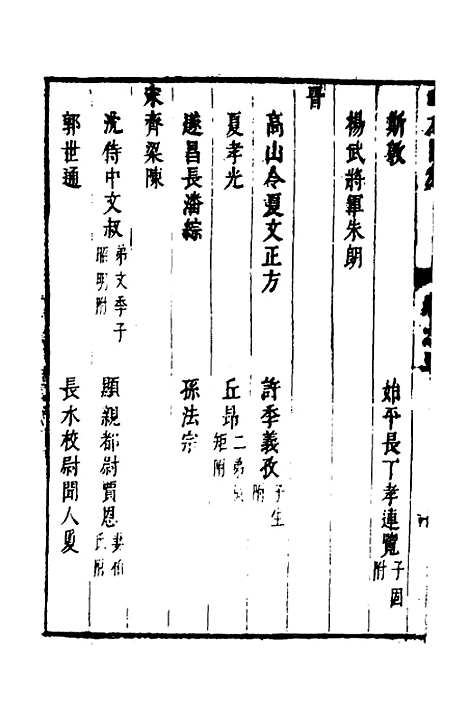 斯敦
始平長丁孝連覽子固附
楊武將軍朱朗
晉
高山令夏文正方
許季義孜子生附
夏孝光
丘昂二弟
矩附
遂昌長潘綜
孫法宗
宋齊梁陳
沈侍中文叔弟文季子昭明附
顯親都尉賈恩妻柏氏附
郭世通
長水校尉聞人夏